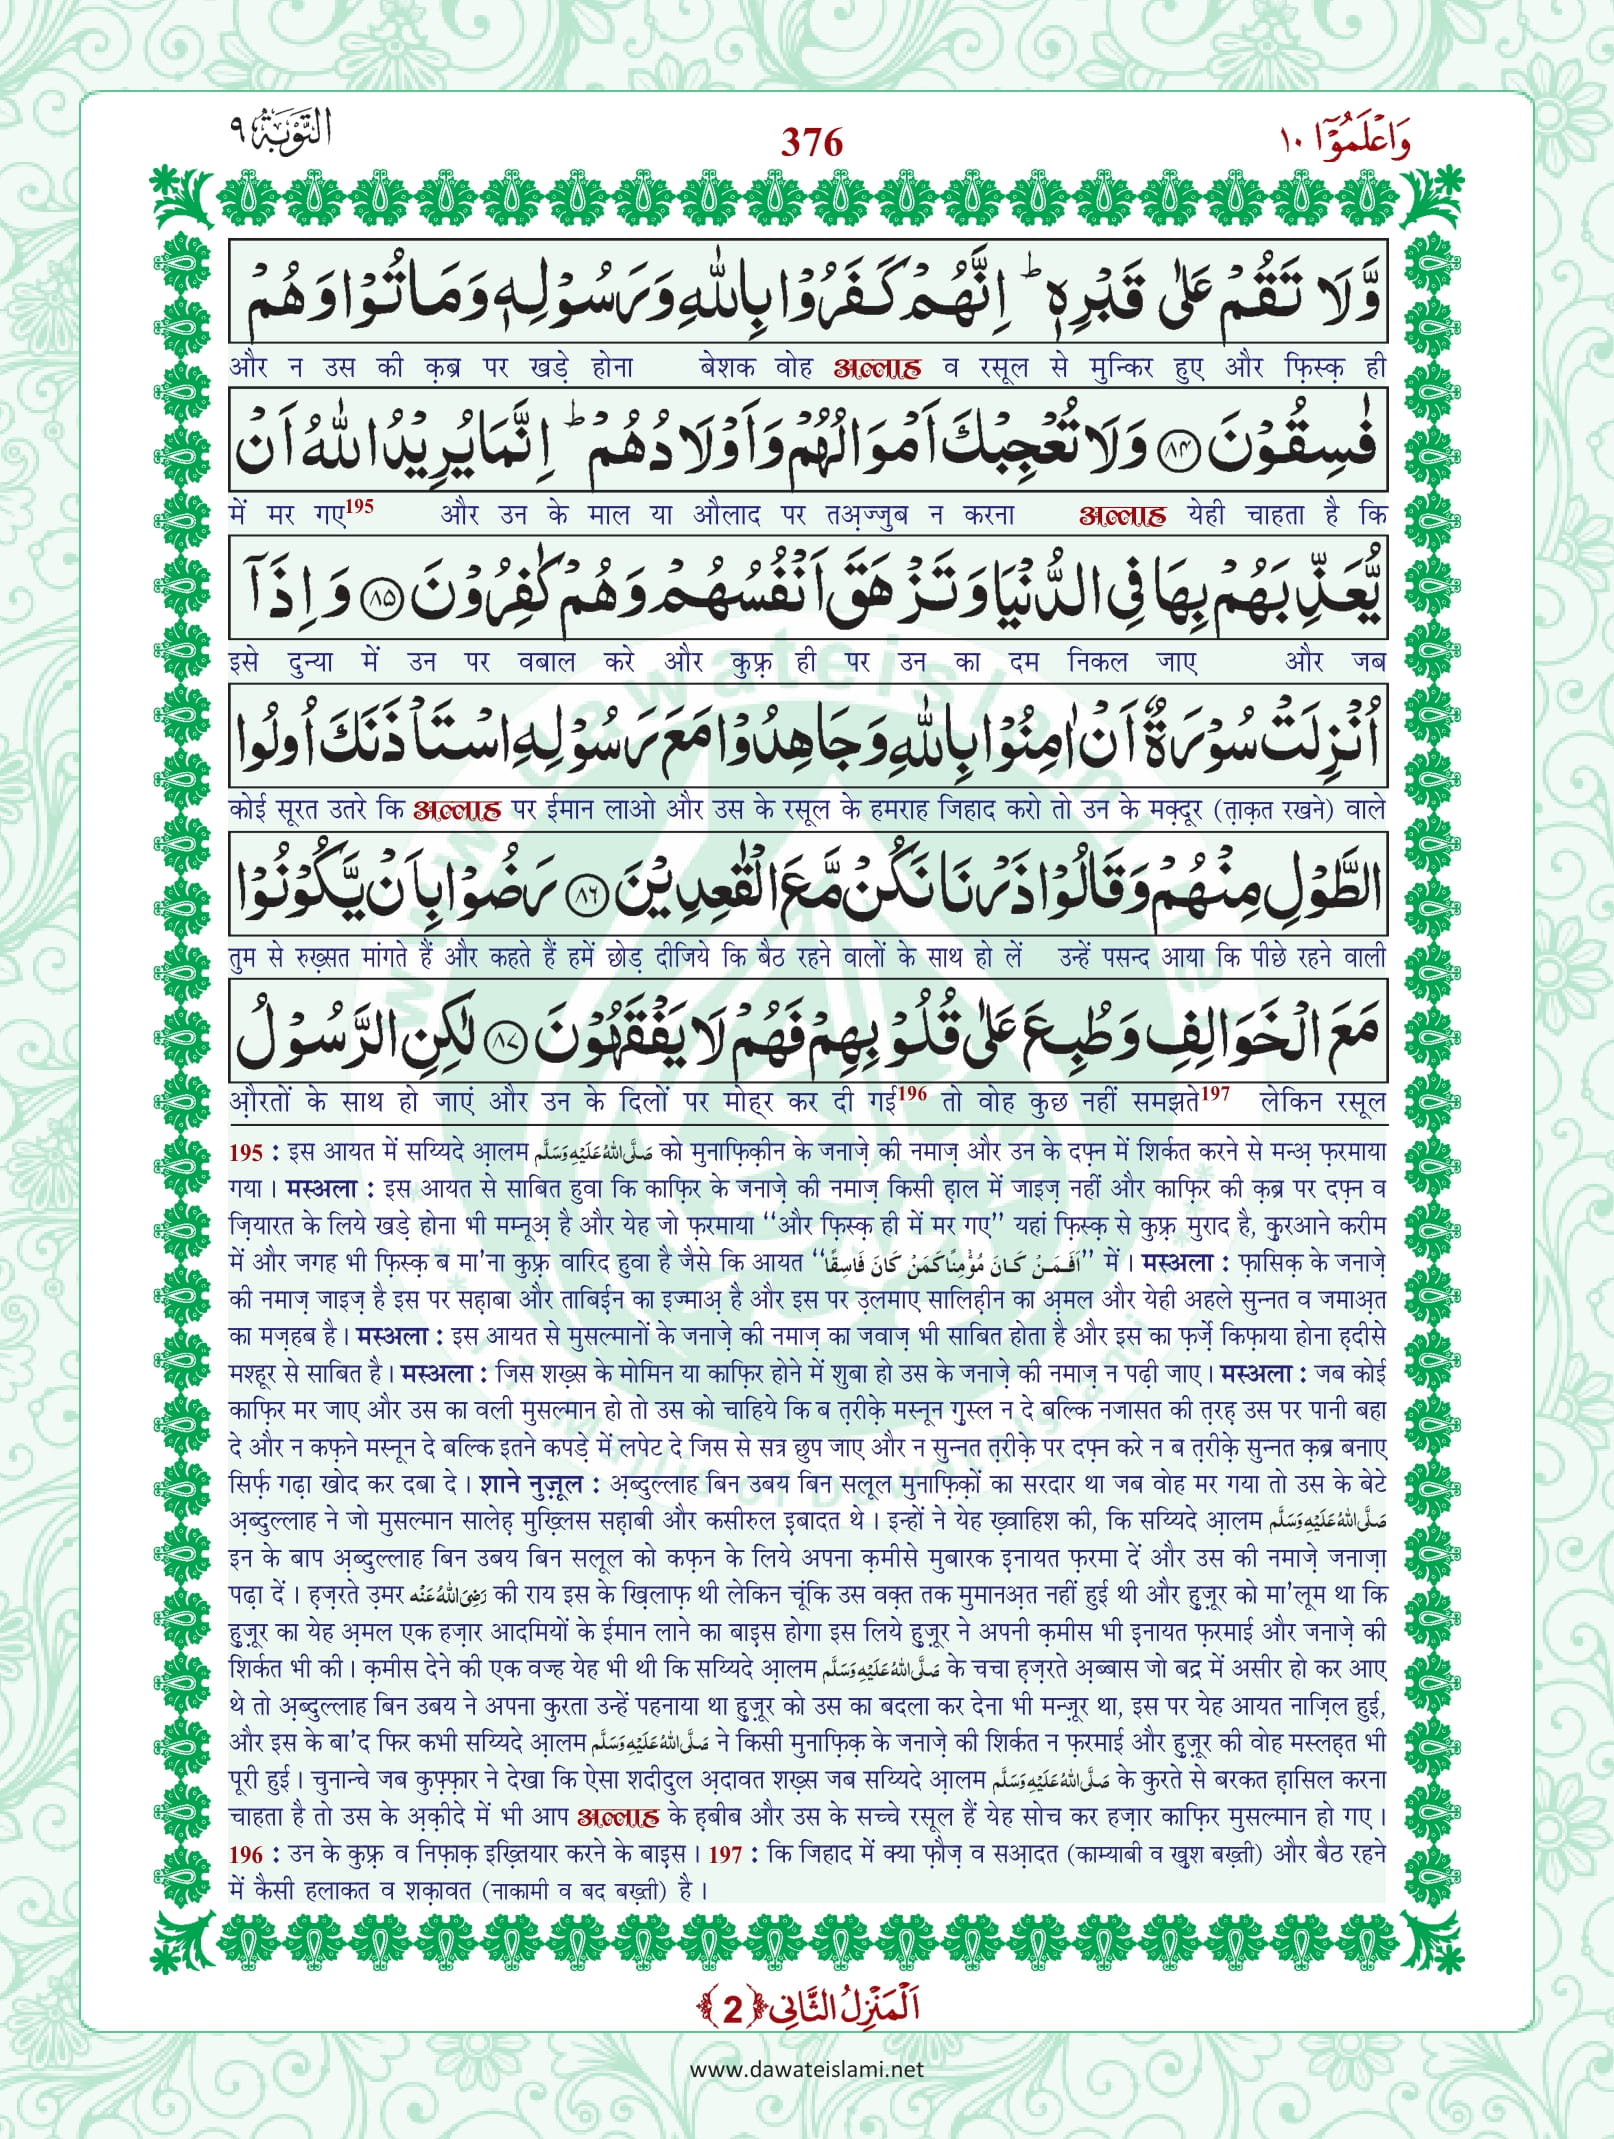 وَاعْلَمُوْۤا ١٠
376
التَّوْبَة ٩
وَّ لَا تَقُمْ عَلٰى قَبْرِهٖؕ اِنَّهُمْ كَفَرُوْا بِاللّٰهِ وَ رَسُوْلِهٖ وَ مَا تُوْا وَ هُمْ
और न उस की क़ब्र पर खड़े होना बेशक वोह अल्लाह व रसूल से मुन्किर हुए और फ़िस्क़ ही
فٰسِقُوْنَ ﴿۸۴﴾ وَ لَا تُعْجِبْكَ اَمْوَالُهُمْ وَ اَوْلَادُهُمْؕ اِنَّمَا یُرِیْدُ اللّٰهُ اَنْ
में मर गए195 और उन के माल या औलाद पर तअ़ज्जुब न करना अल्लाह येही चाहता है कि
یُّعَذِّبَهُمْ بِهَا فِی الدُّنْیَا وَ تَزْهَقَ اَنْفُسُهُمْ وَ هُمْ كٰفِرُوْنَ ﴿۸۵﴾ وَ اِذَاۤ
इसे दुन्या में उन पर वबाल करे और कुफ़्र ही पर उन का दम निकल जाए और जब
اُنْزِلَتْ سُوْرَةٌ اَنْ اٰمِنُوْا بِاللّٰهِ وَ جَاهِدُوْا مَعَ رَسُوْلِهِ اسْتَاْذَنَكَ اُولُوا
कोई सूरत उतरे कि अल्लाह पर ईमान लाओ और उस के रसूल के हमराह जिहाद करो तो उन के मक़्दूर (त़ाक़त रखने) वाले
الطَّوْلِ مِنْهُمْ وَ قَالُوْا ذَرْنَا نَكُنْ مَّعَ الْقٰعِدِیْنَ ﴿۸۶﴾ رَضُوْا بِاَنْ یَّكُوْنُوْا
तुम से रुख़्सत मांगते हैं और कहते हैं हमें छोड़ दीजिये कि बैठ रहने वालों के साथ हो लें उन्हें पसन्द आया कि पीछे रहने वाली
مَعَ الْخَوَالِفِ وَ طُبِعَ عَلٰى قُلُوْبِهِمْ فَهُمْ لَا یَفْقَهُوْنَ ﴿۸۷﴾ لٰكِنِ الرَّسُوْلُ
औ़रतों के साथ हो जाएं और उन के दिलों पर मोह्र कर दी गई196 तो वोह कुछ नहीं समझते197 लेकिन रसूल
195 : इस आयत में सय्यिदे आ़लम صَلَّى اللّٰهُ عَلَيْهِ وَسَلَّم को मुनाफ़िक़ीन के जनाज़े की नमाज़ और उन के दफ़्न में शिर्कत करने से मन्अ़ फ़रमाया
गया। मस्अला : इस आयत से साबित हुवा कि काफ़िर के जनाज़े की नमाज़ किसी ह़ाल में जाइज़ नहीं और काफ़िर की क़ब्र पर दफ़्न व
ज़ियारत के लिये खड़े होना भी मम्नूअ़ है और येह जो फ़रमाया ‘‘और फ़िस्क़ ही में मर गए’’ यहां फ़िस्क़ से कुफ़्र मुराद है, क़ुरआने करीम
में और जगह भी फ़िस्क़ ब मा’ना कुफ़्र वारिद हुवा है जैसे कि आयत ‘‘اَفَمَنْ كَانَ مُؤْمِنًا كَمَنْ كَانَ فَاسِقًا’’ में। मस्अला : फ़ासिक़ के जनाज़े
की नमाज़ जाइज़ है इस पर सह़ाबा और ताबिई़न का इज्माअ़ है और इस पर उ़लमाए सालिह़ीन का अ़मल और येही अहले सुन्नत व जमाअ़त
का मज़हब है। मस्अला : इस आयत से मुसल्मानों के जनाज़े की नमाज़ का जवाज़ भी साबित होता है और इस का फ़र्ज़े किफ़ाया होना ह़दीसे
मश्हूर से साबित है। मस्अला : जिस शख़्स के मोमिन या काफ़िर होने में शुबा हो उस के जनाज़े की नमाज़ न पढ़ी जाए। मस्अला : जब कोई
काफ़िर मर जाए और उस का वली मुसल्मान हो तो उस को चाहिये कि ब त़रीक़े मस्नून ग़ुस्ल न दे बल्कि नजासत की त़रह़ उस पर पानी बहा
दे और न कफ़ने मस्नून दे बल्कि इतने कपड़े में लपेट दे जिस से सत्र छुप जाए और न सुन्नत त़रीक़े पर दफ़्न करे न ब त़रीक़े सुन्नत क़ब्र बनाए
सिर्फ़ गढ़ा खोद कर दबा दे। शाने नुज़ूल : अ़ब्दुल्लाह बिन उबय बिन सलूल मुनाफ़िक़ों का सरदार था जब वोह मर गया तो उस के बेटे
अ़ब्दुल्लाह ने जो मुसल्मान सालेह़ मुख़्लिस सह़ाबी और कसीरुल इबादत थे। इन्हों ने येह ख़्वाहिश की, कि सय्यिदे आ़लम صَلَّى اللّٰهُ عَلَيْهِ وَسَلَّم
इन के बाप अ़ब्दुल्लाह बिन उबय बिन सलूल को कफ़न के लिये अपना क़मीसे मुबारक इ़नायत फ़रमा दें और उस की नमाज़े जनाज़ा
पढ़ा दें। ह़ज़रते उ़मर رَضِىَ اللّٰهُ عَنْه की राय इस के ख़िलाफ़ थी लेकिन चूंकि उस वक़्त तक मुमानअ़त नहीं हुई थी और ह़ुज़ूर को मा’लूम था कि
ह़ुज़ूर का येह अ़मल एक हज़ार आदमियों के ईमान लाने का बाइस होगा इस लिये ह़ुज़ूर ने अपनी क़मीस भी इनायत फ़रमाई और जनाज़े की
शिर्कत भी की। क़मीस देने की एक वज्ह येह भी थी कि सय्यिदे आ़लम صَلَّى اللّٰهُ عَلَيْهِ وَسَلَّم के चचा ह़ज़रते अ़ब्बास जो बद्र में असीर हो कर आए
थे तो अ़ब्दुल्लाह बिन उबय ने अपना कुरता उन्हें पहनाया था ह़ुज़ूर को उस का बदला कर देना भी मन्ज़ूर था, इस पर येह आयत नाज़िल हुई,
और इस के बा’द फिर कभी सय्यिदे आ़लम صَلَّى اللّٰهُ عَلَيْهِ وَسَلَّم ने किसी मुनाफ़िक़ के जनाज़े की शिर्कत न फ़रमाई और ह़ुज़ूर की वोह मस्लह़त भी
पूरी हुई। चुनान्चे जब कुफ़्फ़ार ने देखा कि ऐसा शदीदुल अ़दावत शख़्स जब सय्यिदे आ़लम صَلَّى اللّٰهُ عَلَيْهِ وَسَلَّم के कुरते से बरकत ह़ासिल करना
चाहता है तो उस के अ़क़ीदे में भी आप अल्लाह के ह़बीब और उस के सच्चे रसूल हैं येह सोच कर हज़ार काफ़िर मुसल्मान हो गए।
196 : उन के कुफ़्र व निफ़ाक़ इख़्तियार करने के बाइस। 197 : कि जिहाद में क्या फ़ौज़ व सआ़दत (काम्याबी व ख़ुश बख़्ती) और बैठ रहने
में कैसी हलाकत व शक़ावत (नाकामी व बद बख़्ती) है।
اَلْمَنْزِلُ الثَّانِى ﴿2﴾
www.dawateislami.net